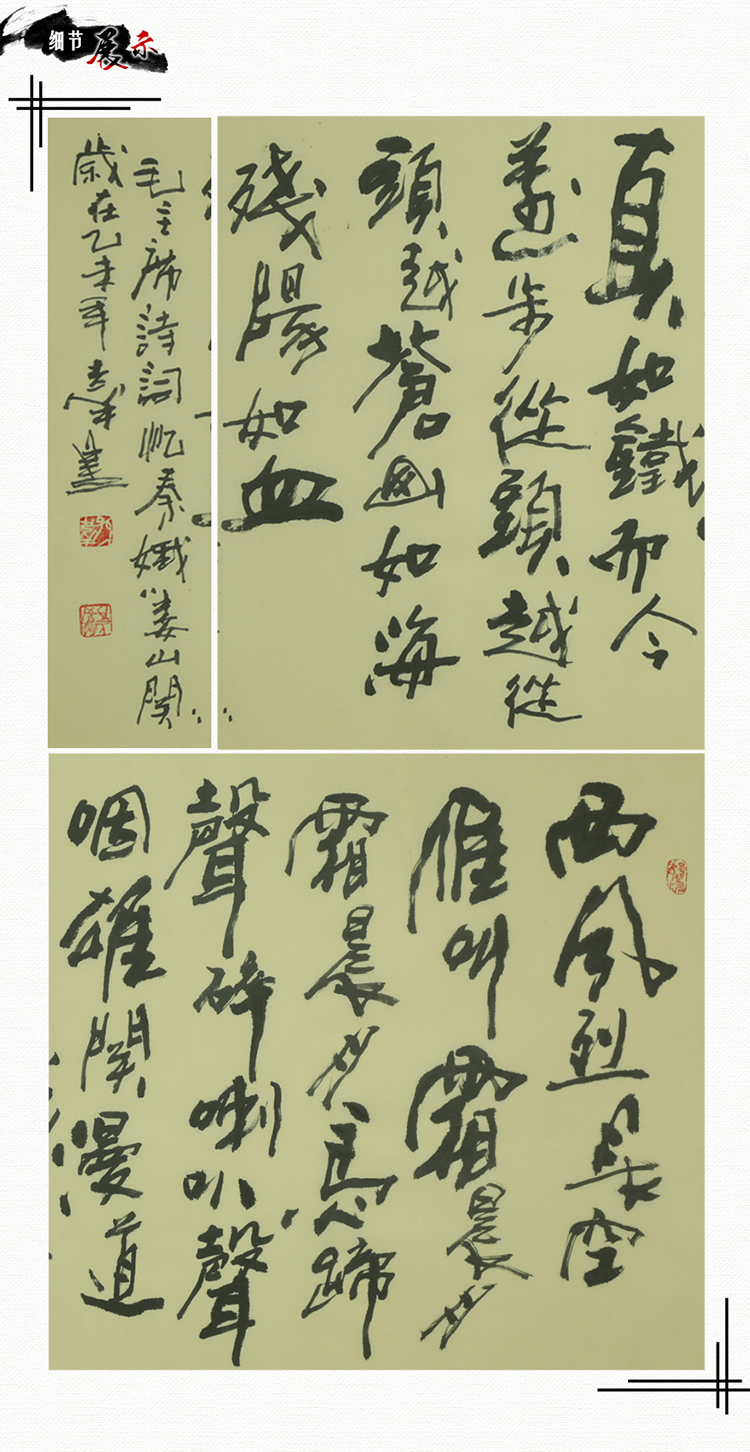 细节展示
西风烈長空
雁叫霜晨月
霜晨月馬蹄
聲碎喇叭聲
咽雄関漫道
真如鐵而今
邁步從頭越從
頭越蒼山如海
殘陽如血
毛主席詩詞忆秦娥婁山関
歲在乙未年